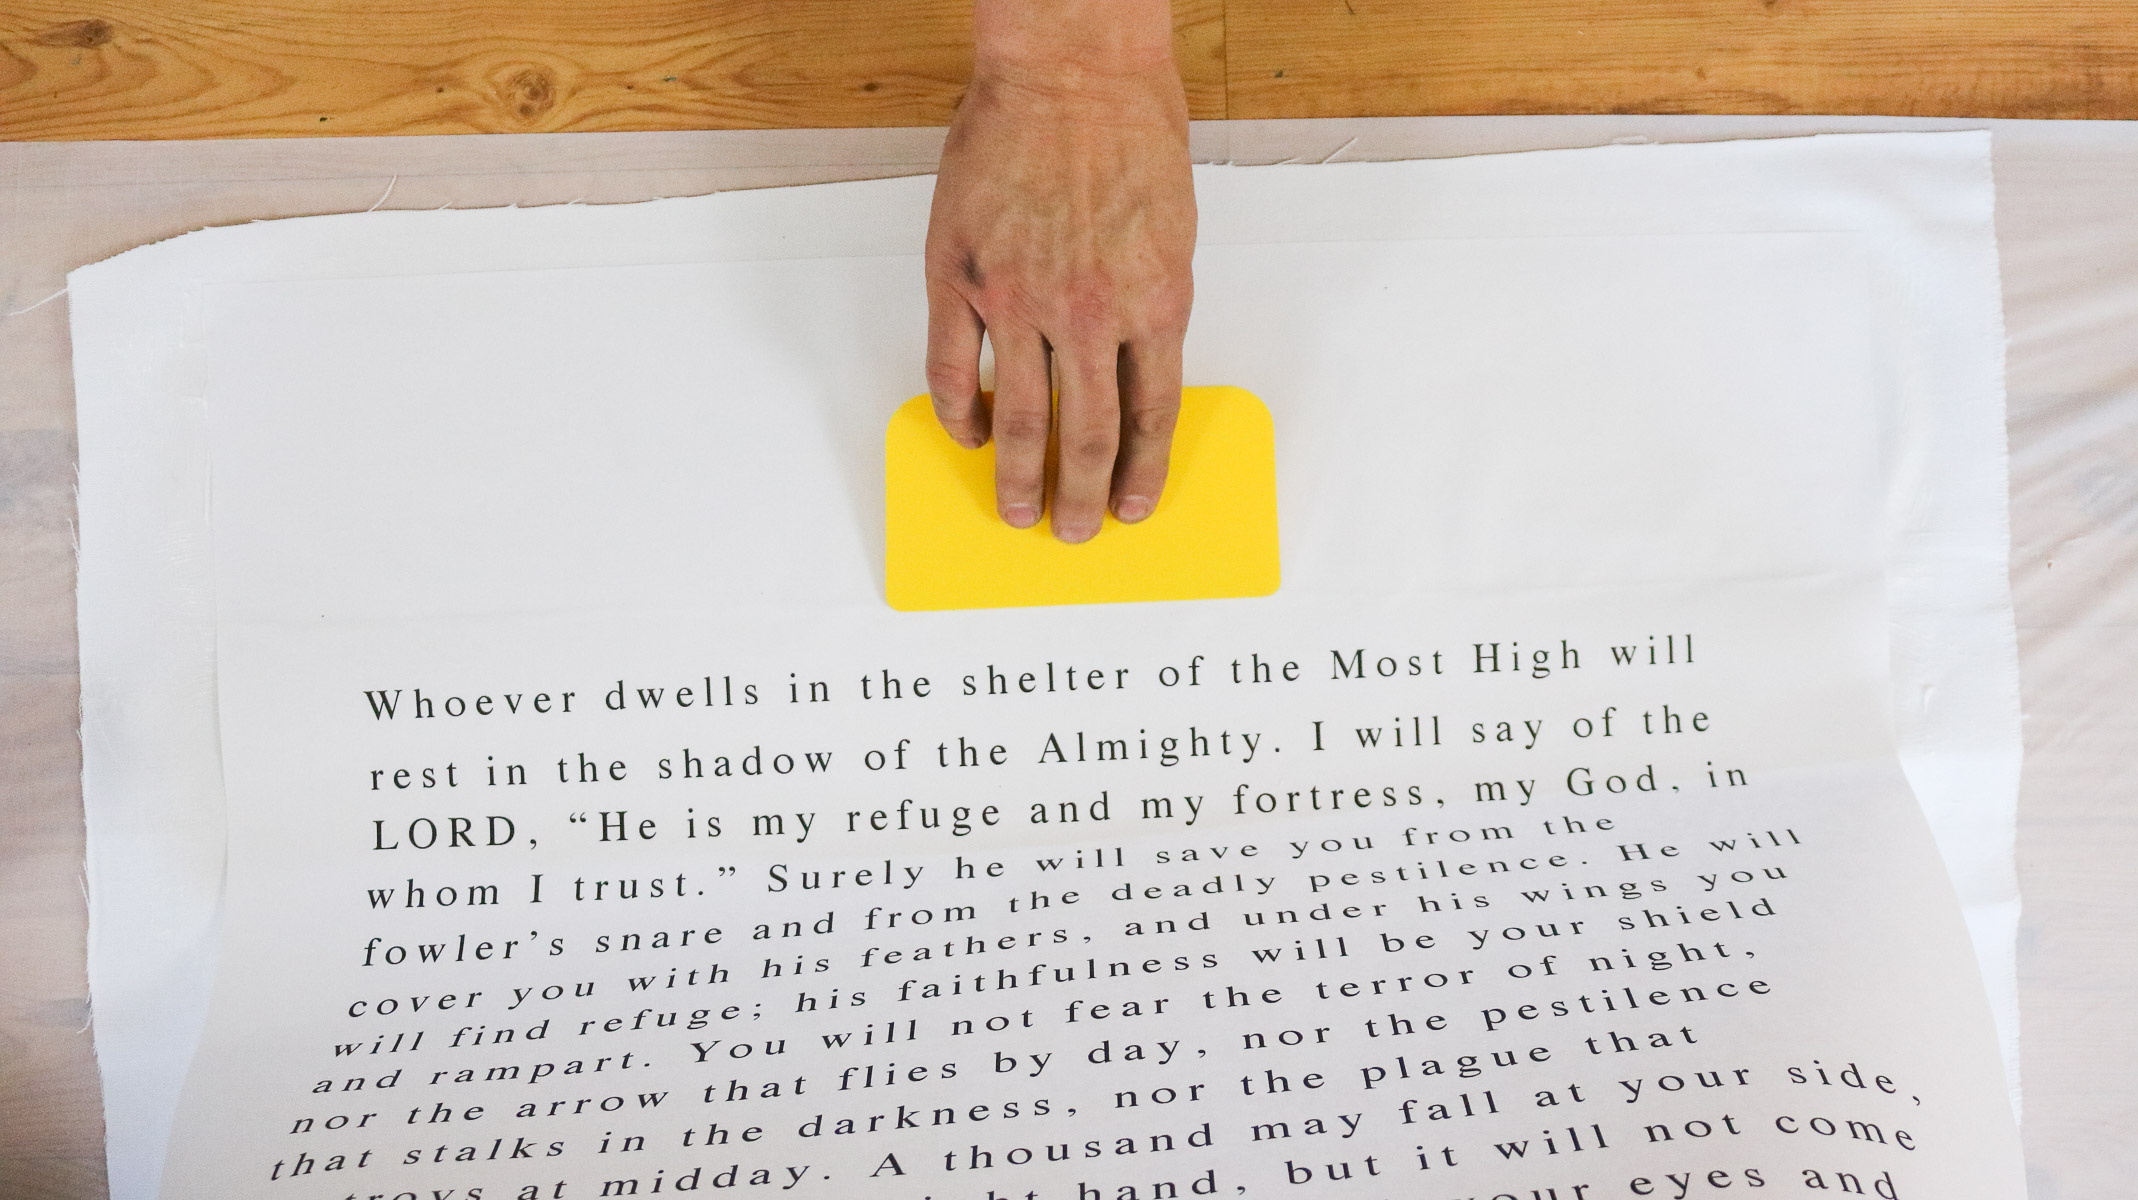 Whoever dwells in the shelter of the Most High will
rest in the shadow of the Almighty. I will say of the
LORD, “He is my refuge and my fortress, my God, in
whom I trust.” Surely he will save you from the
fowler’s snare and from the deadly pestilence. He will
cover you with his feathers, and under his wings you
will find refuge; his faithfulness will be your shield
and rampart. You will not fear the terror of night,
nor the arrow that flies by day, nor the pestilence
that stalks in the darkness, nor the plague that
at midday. A thousand may fall at your side,
hand, but it will not come
eyes and